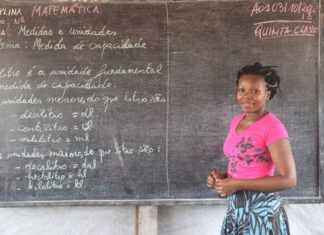 PLINA MATEMÁTICA AOS 03/10/2018
Nº QUINTA CLASSE
: Medidas e unidades
ema : Medida de capacidade
litro é a unidade fundamental
medida de capacidade.
unidades menores do que litro são
- decilitro = dl
- centilitro = cl
- mililitro = ml
as unidades maiores do que litro são :
- decalitro = dal
- hectolitro = hl
- kilolitro = kl